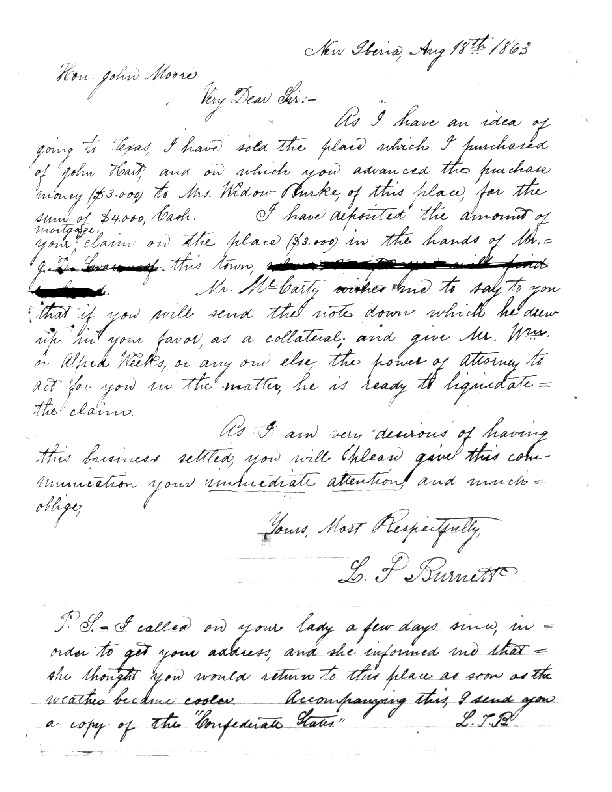 New Iberia, Aug 18th 1863
Hon. John Moore
Very Dear Sir:-
As I have an idea of
going to Texas, I have sold the place which I purchased
of John Hart, and on which you advanced the purchase
money ($3.000) to Mrs. Widow Burke, of this place, for the
sum of $4.000, Cash. I have deposited the amount of
mortgage
your claim on the place ($3.000) in the hands of Mr. =
of this town,
Mr. McCarty wishes me to say to you
that if you will send the note down which he drew
up in your favor, as a collateral; and give Mr. Wm.
or Alfred Weeks, or any one else the power of attorney to
act for you in the matter, he is ready to liquidate =
the claim.
As I am very desirous of having
this business settled, you will please give this com-
munication your immediate attention, and much =
oblige,
Yours, Most Respectfully,
L. T. Burnett
P. S. - I called on your lady a few days since, in =
order to get your address, and she informed me that =
she thought you would return to this place as soon as the
weather became cooler. Accompanying this, I send you
a copy of the "Confederate States" L. T. B.